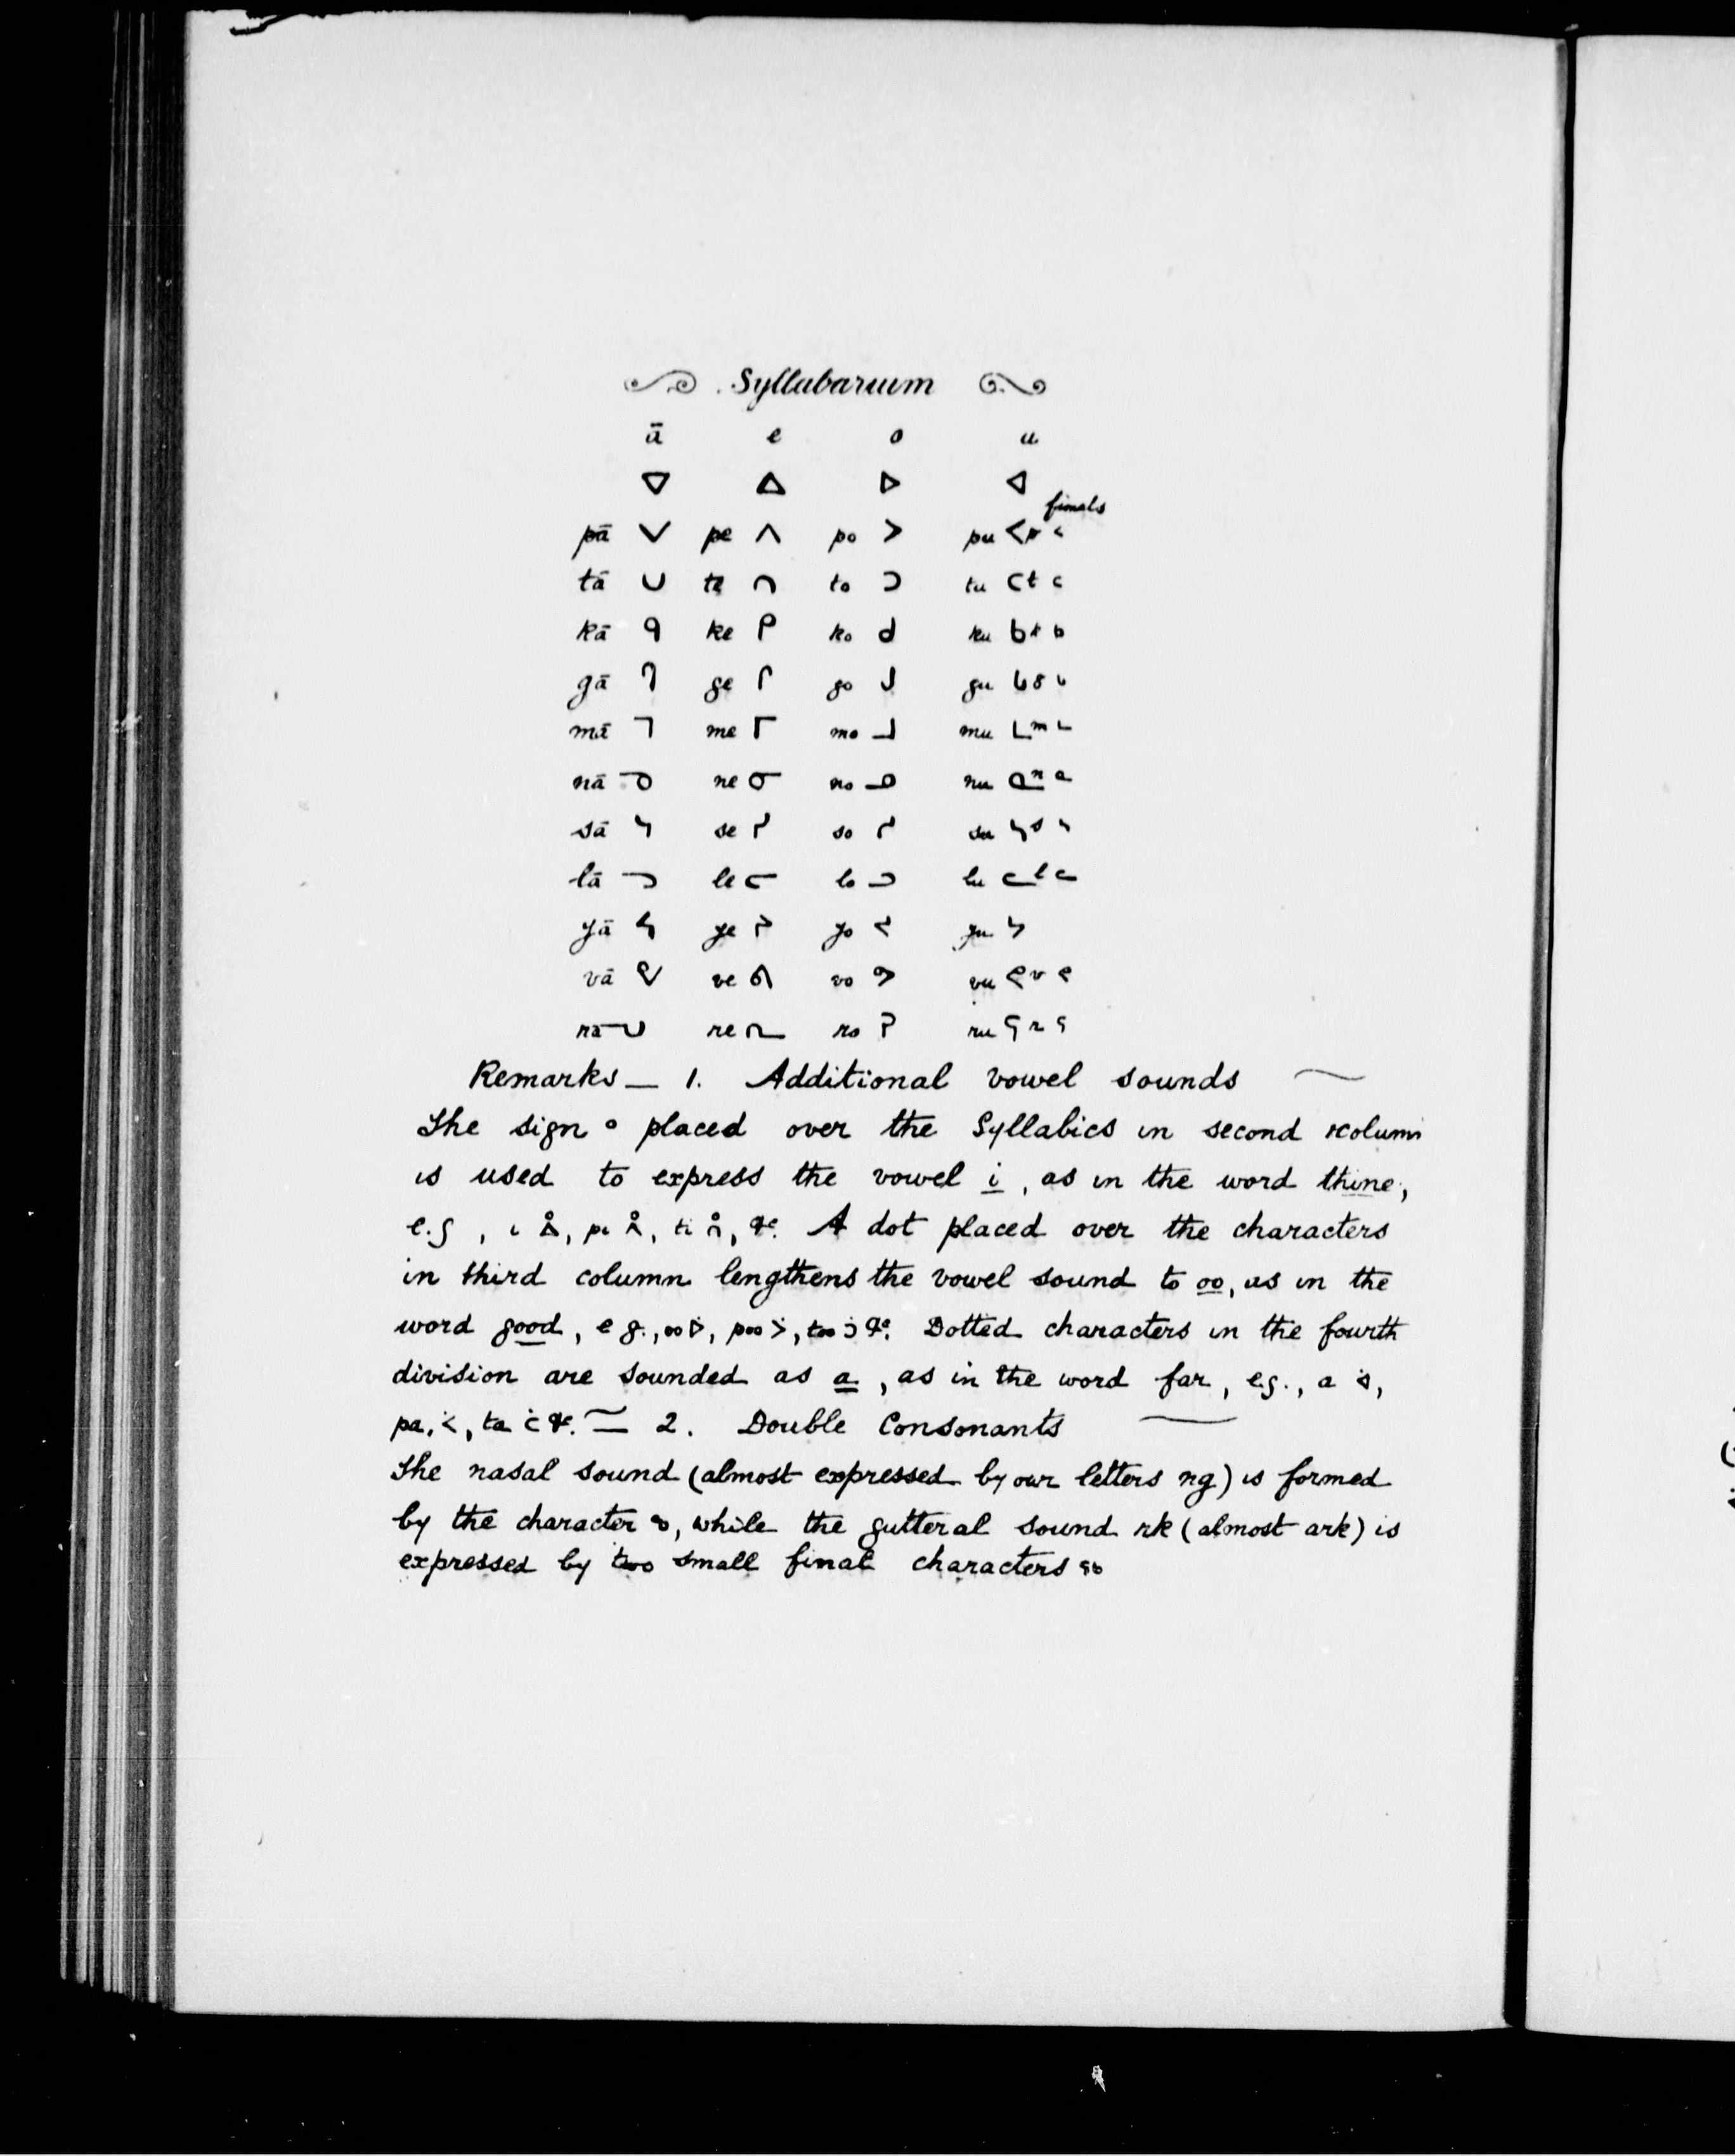 Syllabarium
ā e o u
ᐁ ᐃ ᐅ ᐊ
finals
pā ᐯ pe ᐱ po ᐳ pu ᐸ p ᑉ
tā ᑌ te ᑎ to ᑐ tu ᑕ t ᑦ
kā ᑫ ke ᑭ ko ᑯ ku ᑲ k ᒃ
gā ᒉ ge ᒋ go ᒍ gu ᒐ g ᒡ
mā ᒣ me ᒥ mo ᒧ mu ᒪ m ᒻ
nā ᓀ ne ᓂ no ᓄ nu ᓇ n ᓐ
sā ᓭ se ᓯ so ᓱ su ᓴ s ᔅ
lā ᓓ le ᓕ lo ᓗ lu ᓚ l ᓪ
yā ᔦ ye ᔨ yo ᔪ yu ᔭ
vā ᕓ ve ᕕ vo ᕗ vu ᕙ v ᕝ
rā ᕃ re ᕆ ro ᕈ ru ᕋ r ᕐ
Remarks — 1. Additional vowel sounds
The sign ° placed over the Syllabics in second column
is used to express the vowel i, as in the word thine,
e.g, i ᐃ̊, pi ᐱ̊, ti ᑎ̊, &c. A dot placed over the characters
in third column lengthens the vowel sound to oo, as in the
word good, e g., oo ᐆ, poo ᐴ, too ᑑ &c. Dotted characters in the fourth
division are sounded as a, as in the word far, e.g., a ᐋ,
pa, ᐹ, ta ᑖ &c. — 2. Double Consonants
The nasal sound (almost expressed by our letters ng) is formed
by the character ᖕ, while the gutteral sound rk (almost ark) is
expressed by two small final characters ᖅ